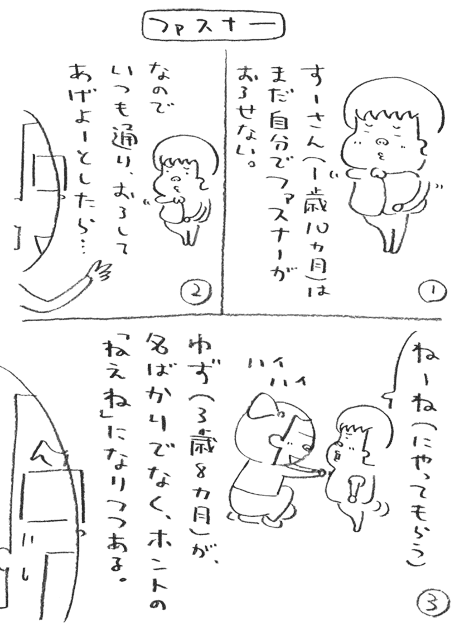 ファスナー
すーさん(1歳10カ月)は
まだ自分でファスナーが
おろせない。
①
なので
いつも通り、おろして
あげよーとしたら…
②
ねーね(にやってもらう)
ハイ
ハイ
ゆず(3歳8カ月)が、
名ばかりでなく、ホントの
「ねえね」になりつつある。
③